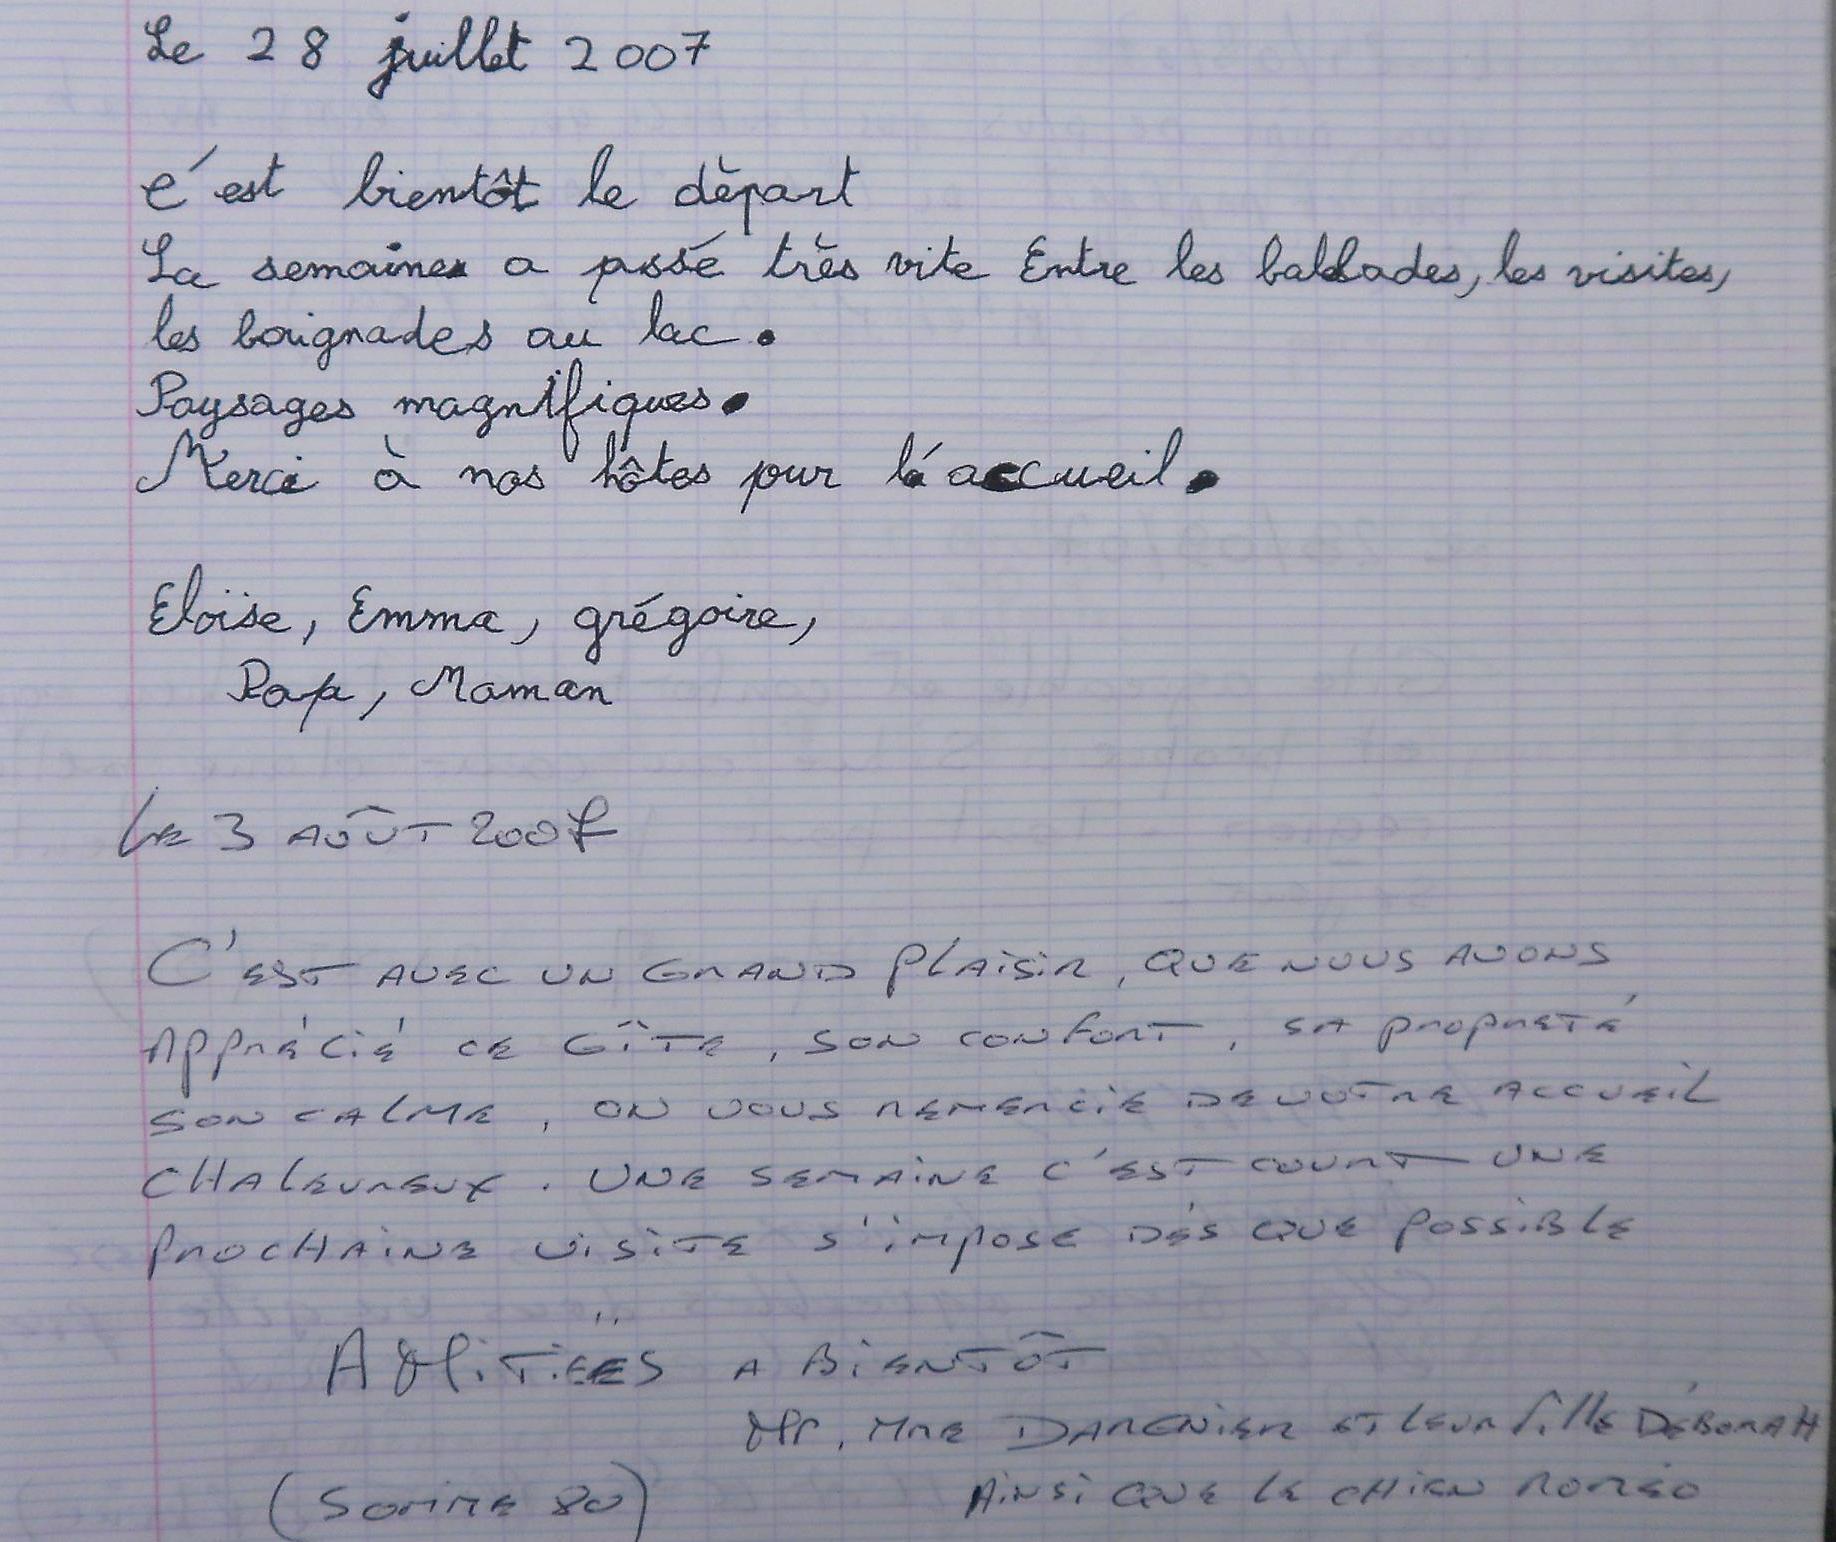 Le 28 juillet 2007
c'est bientôt le départ
La semaine a passé très vite Entre les ballades, les visites,
les baignades au lac.
Paysages magnifiques.
Merci à nos hôtes pour l'accueil.
Eloïse, Emma, grégoire,
Papa, Maman
Le 3 AOÛT 2007
C'EST AVEC UN GRAND PLAISIR, QUE NOUS AVONS
APPRÉCIÉ CE GÎTE, SON CONFORT, SA PROPRETÉ
SON CALME, ON VOUS REMERCIE DE VOTRE ACCUEIL
CHALEUREUX. UNE SEMAINE C'EST COURT UNE
PROCHAINE VISITE S'IMPOSE DÉS QUE POSSIBLE
AMITIÉES A BIENTÔT
Mr, Mme ET LEUR fille DÉBORAH
(SOMME 80) AINSI QUE LE CHIEN ROMÉO